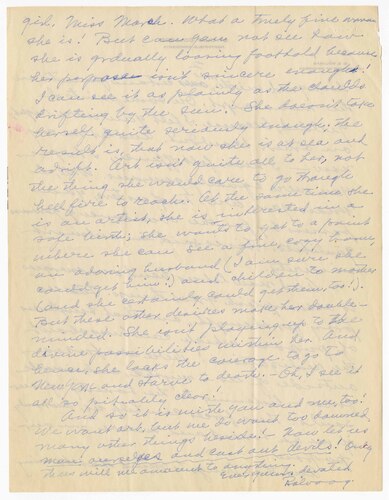 girl, Miss March. What a truly fine woman
she is! But can you not see how
she is gradually loosing foothold because
her purpose isn't sincere enough!
I can see it as plainly as the clouds
drifting by the sun! She doesn't take
herself quite seriously enough; the
result is, that now she is at sea and
adrift. Art isn't quite all to her, not
the thing she would care to go through
hellfire to reach. At the same time she
is an artist, she is interested in a
safe birth; she wants to get to a point
where she can see a fine, cozy home,
an adoring husband (I am sure she
could get him!) and children to mother
(and she certainly could get them too!).
But these other desires make her double-
minded. She isn't playing up to the
divine possibilities within her. And
she lacks the courage to go to
New York and starve to death. - Oh, I see it
all so pitifully clear!
And so it is with you and me, too!
We want art, but we do want too damned
many other things beside! Now let us
ourselves and cast out devils! Only
then will we amount to anything.
Ever yours devoted